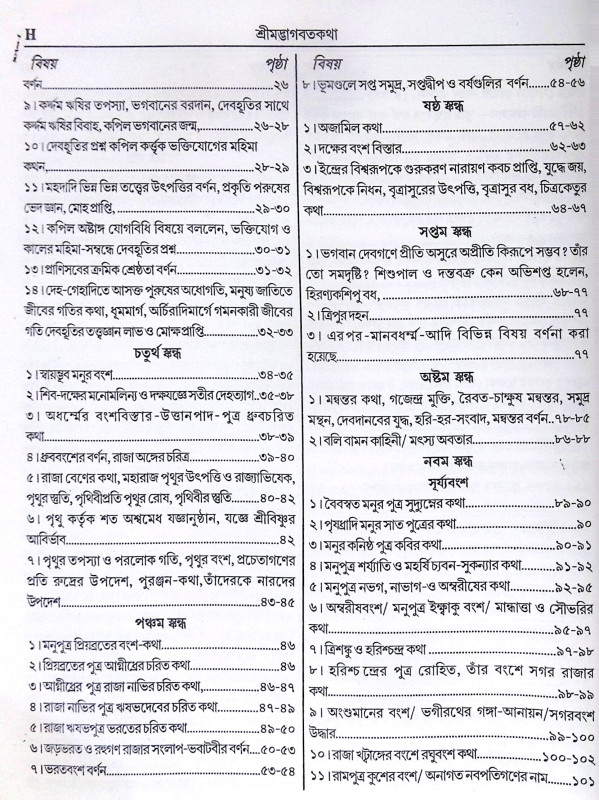 H
শ্রীমদ্ভাগবতকথা
বিষয় পৃষ্ঠা
বর্ণন....২৬
৯। কর্দ্দম ঋষির তপস্যা, ভগবানের বরদান, দেবহূতির সাথে
কর্দ্দম ঋষির বিবাহ, কপিল ভগবানের জন্ম,....২৬-২৮
১০। দেবহূতির প্রশ্ন কপিল কর্ত্তৃক ভক্তিযোগের মহিমা
কথন,....২৮-২৯
১১। মহদাদি ভিন্ন ভিন্ন তত্ত্বের উৎপত্তির বর্ণন, প্রকৃতি পরুষের
ভেদ জ্ঞান, মোহ প্রাপ্তি,....২৯-৩০
১২। কপিল অষ্টাঙ্গ যোগবিধি বিষয়ে বললেন, ভক্তিযোগ ও
কালের মহিমা-সম্বন্ধে দেবহূতির প্রশ্ন....৩০-৩১
১৩। প্রাণিসবের ক্রমিক শ্রেষ্ঠতা বর্ণন....৩১-৩২
১৪। দেহ-গেহাদিতে আসক্ত পুরুষের অধোগতি, মনুষ্য জাতিতে
জীবের গতির কথা, ধূমমার্গ, অর্চিরাদিমার্গে গমনকারী জীবের
গতি দেবহূতির তত্ত্বজ্ঞান লাভ ও মোক্ষ প্রাপ্তি....৩২-৩৩
চতুর্থ স্কন্ধ
১। স্বায়ম্ভুব মনুর বংশ....৩৪-৩৫
২। শিব-দক্ষের মনোমলিন্য ও দক্ষযজ্ঞে সতীর দেহত্যাগ..৩৫-৩৮
৩। অধর্ম্মের বংশবিস্তার-উত্তানপাদ-পুত্র ধ্রুবচরিত
কথা....৩৮-৩৯
৪। ধ্রুববংশের বর্ণন, রাজা অঙ্গের চরিত্র....৩৯-৪০
৫। রাজা বেণের কথা, মহারাজ পৃথুর উৎপত্তি ও রাজ্যাভিষেক,
পৃথুর স্তুতি, পৃথিবীপ্রতি পৃথুর রোষ, পৃথিবীর স্তুতি....৪০-৪২
৬। পৃথু কর্তৃক শত অশ্বমেধ যজ্ঞানুষ্ঠান, যজ্ঞে শ্রীবিষ্ণুর
আবির্ভাব....৪২
৭। পৃথুর তপস্যা ও পরলোক গতি, পৃথুর বংশ, প্রচেতাগণের
প্রতি রুদ্রের উপদেশ, পুরঞ্জন-কথা,তাঁদেরকে নারদের
উপদেশ....৪৩-৪৫
পঞ্চম স্কন্ধ
১। মনুপুত্র প্রিয়ব্রতের বংশ-কথা....৪৬
২। প্রিয়ব্রতের পুত্র আগ্নীধ্রের চরিত কথা....৪৬
৩। আগ্নীধ্রের পুত্র রাজা নাভির চরিত কথা,....৪৬-৪৭
৪। রাজা নাভির পুত্র ঋষভদেবের চরিত কথা....৪৭-৪৯
৫। রাজা ঋষভপুত্র ভরতের চরিত কথা....৪৯-৫০
৬। জড়ভরত ও রহুগণ রাজার সংলাপ-ভবাটবীর বর্ণন....৫০-৫৩
৭। ভরতবংশ বর্ণন....৫৩-৫৪
বিষয় পৃষ্ঠা
৮। ভূমণ্ডলে সপ্ত সমুদ্র, সপ্তদ্বীপ ও বর্ষগুলির বর্ণন....৫৪-৫৬
ষষ্ঠ স্কন্ধ
১। অজামিল কথা....৫৭-৬২
২। দক্ষের বংশ বিস্তার....৬২-৬৩
৩। ইন্দ্রের বিশ্বরূপকে গুরুকরণ নারায়ণ কবচ প্রাপ্তি, যুদ্ধে জয়,
বিশ্বরূপকে নিধন, বৃত্রাসুরের উৎপত্তি, বৃত্রাসুর বধ, চিত্রকেতুর
কথা....৬৪-৬৭
সপ্তম স্কন্ধ
১। ভগবান দেবগণে প্রীতি অসুরে অপ্রীতি কিরূপে সম্ভব? তাঁর
তো সমদৃষ্টি? শিশুপাল ও দন্তবক্র কেন অভিশপ্ত হলেন,
হিরণ্যকশিপু বধ,....৬৮-৭৭
২। ত্রিপুর দহন....৭৭
৩। এরপর-মানবধর্ম্ম-আদি বিভিন্ন বিষয় বর্ণনা করা
হয়েছে....৭৭
অষ্টম স্কন্ধ
১। মন্বন্তর কথা, গজেন্দ্র মুক্তি, রৈবত-চাক্ষুষ মন্বন্তর, সমুদ্র
মন্থন, দেবদানবের যুদ্ধ, হরি-হর-সংবাদ, মন্বন্তর বর্ণন..৭৮-৮৫
২। বলি বামন কাহিনী/ মৎস্য অবতার....৮৬-৮৮
নবম স্কন্ধ
সূর্য্যবংশ
১। বৈবস্বত মনুর পুত্র সুদ্যুম্নের কথা....৮৯-৯০
২। পৃষধ্রাদি মনুর সাত পুত্রের কথা....৯০
৩। মনুর কনিষ্ঠ পুত্র কবির কথা....৯০-৯১
৪। মনুপুত্র শর্য্যাতি ও মহর্ষি চ্যবন-সুকন্যার কথা....৯১-৯২
৫। মনুপুত্র নভগ, নাভাগ-ও অম্বরীষের কথা....৯২-৯৫
৬। অম্বরীষবংশ/ মনুপুত্র ইক্ষ্বাকু বংশ/ মান্ধাতা ও সৌভরির
কথা....৯৫-৯৭
৭। ত্রিশঙ্কু ও হরিশ্চন্দ্র কথা....৯৭-৯৮
৮। হরিশ্চন্দ্রের পুত্র রোহিত, তাঁর বংশে সগর রাজার
কথা....৯৮-৯৯
৯। অংশুমানের বংশ/ ভগীরথের গঙ্গা-আনায়ন/সগরবংশ
উদ্ধার....৯৯-১০০
১০। রাজা খট্বাঙ্গের বংশে রঘুবংশ কথা....১০০-১০২
১১। রামপুত্র কুশের বংশ/ অনাগত নবপতিগণের নাম....১০১